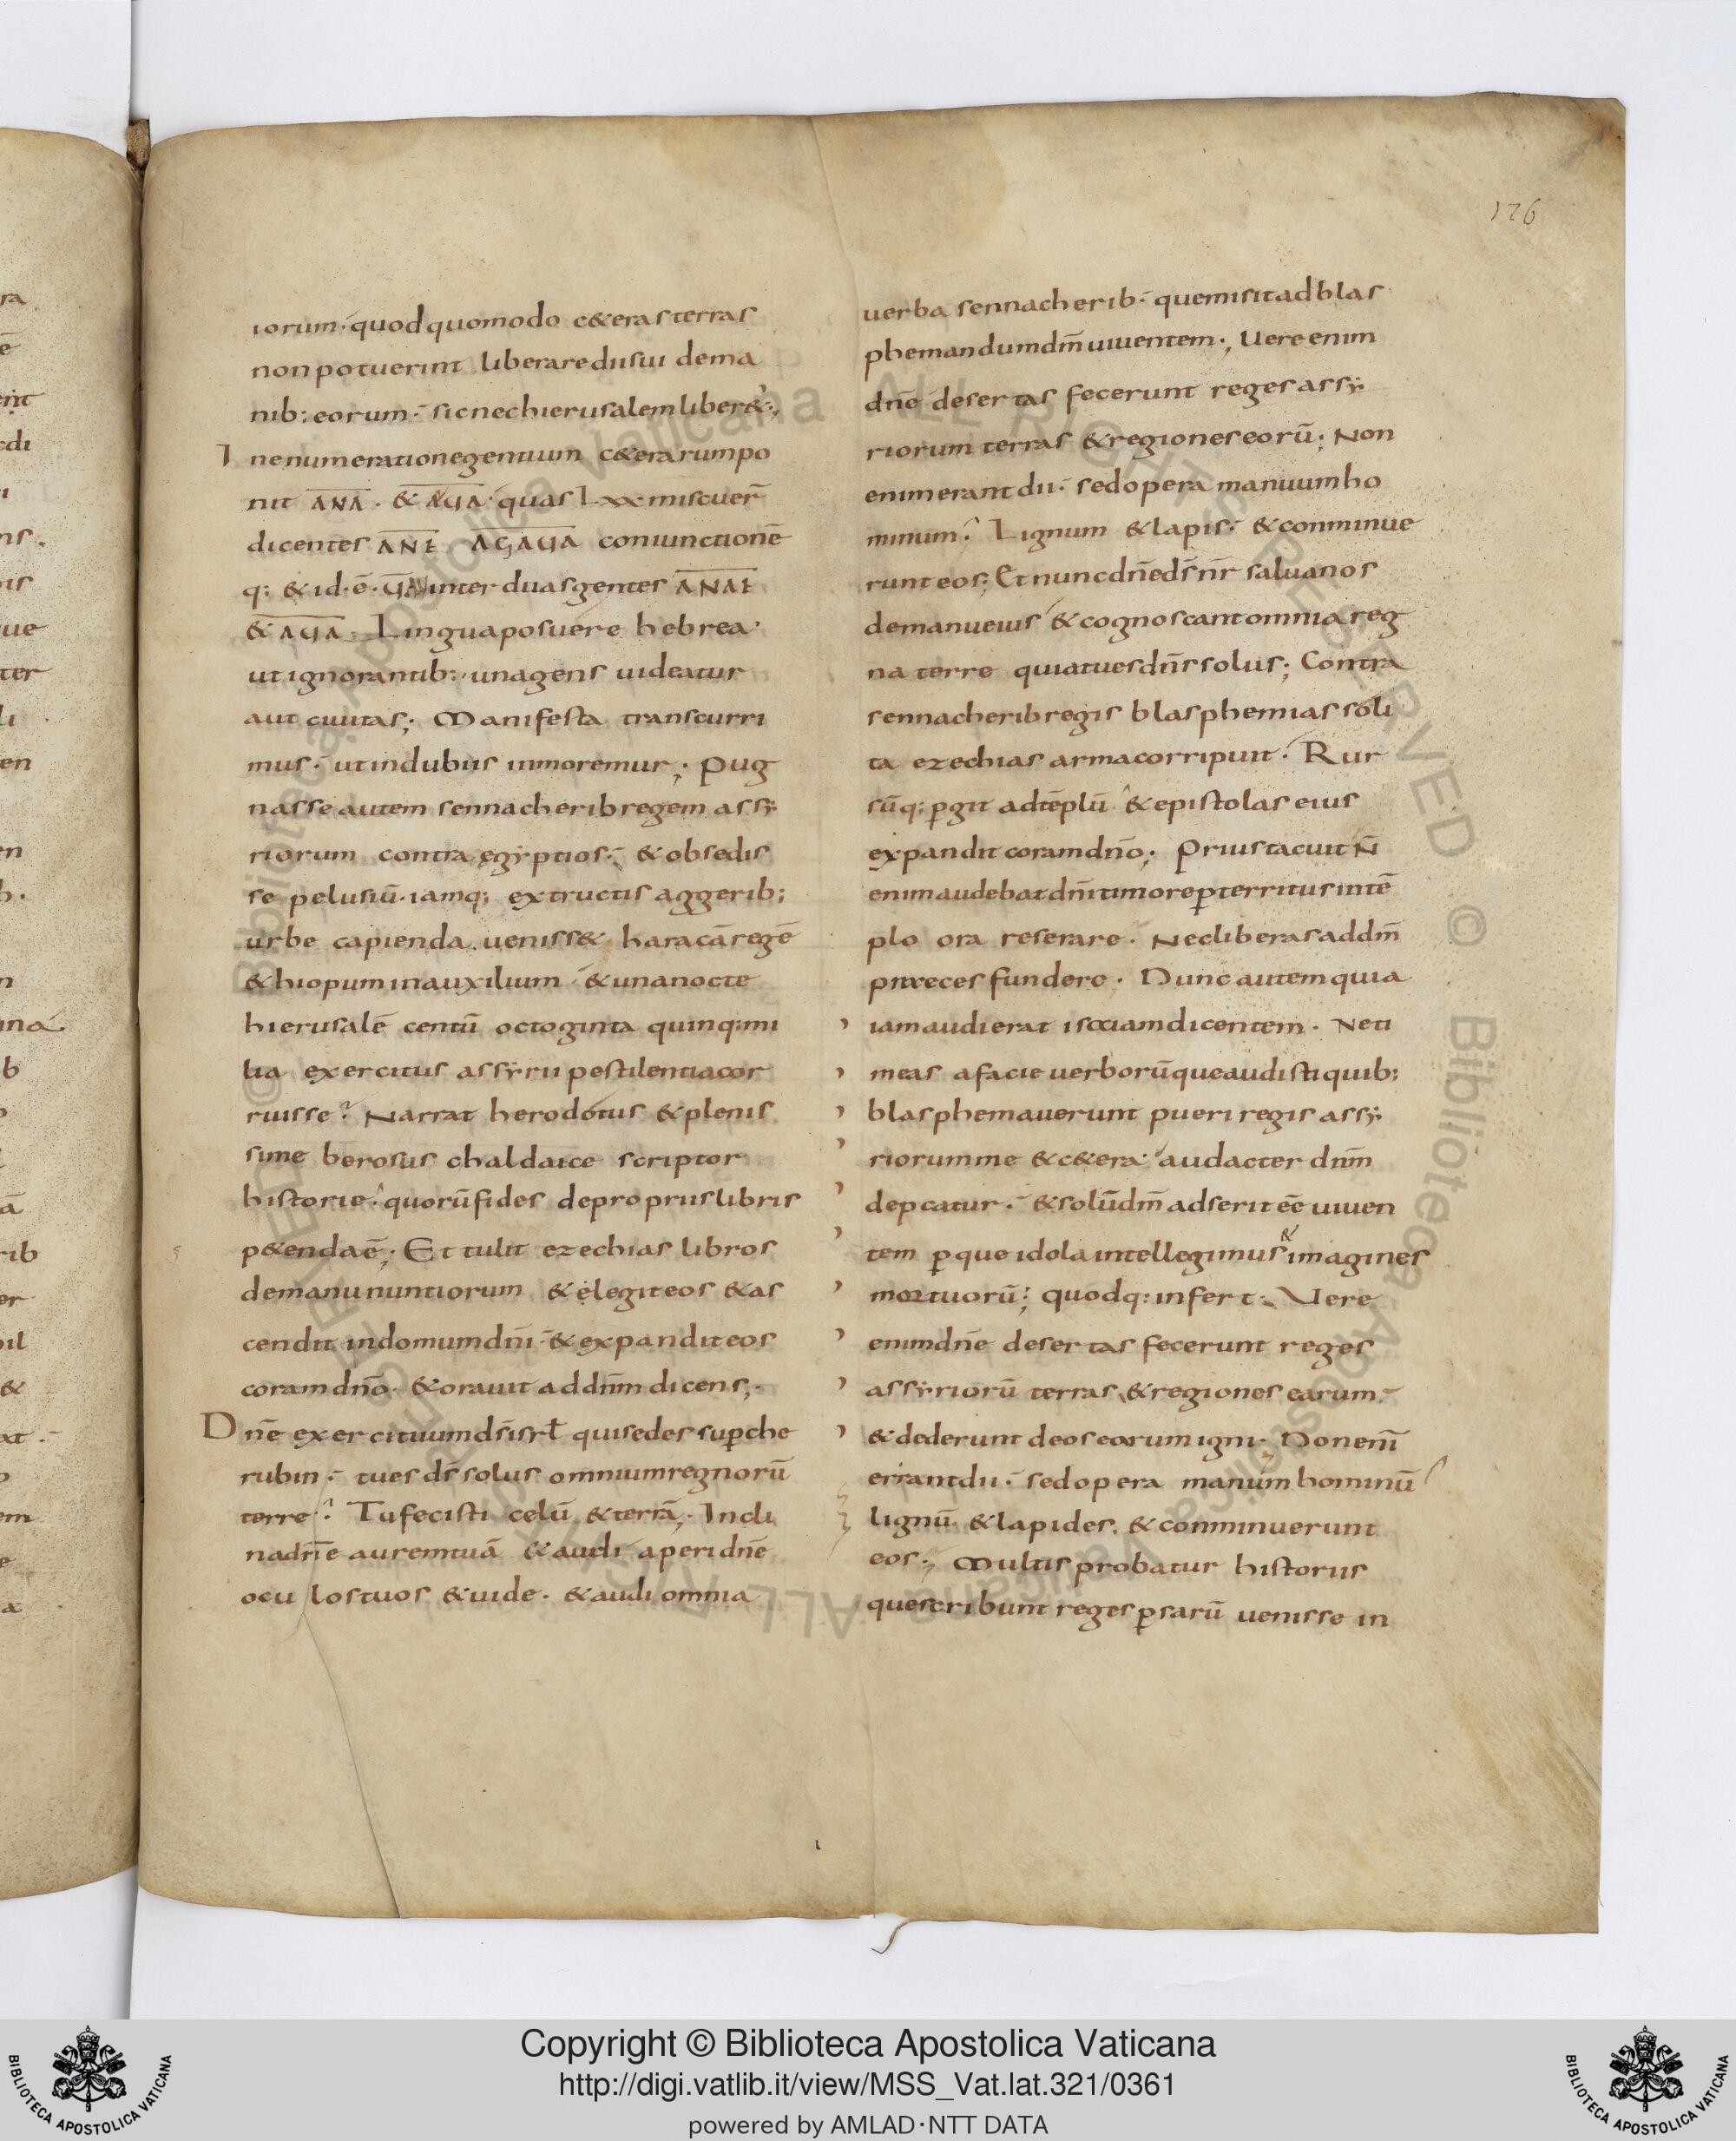 176
iorum· quod quomodo c&eras terras
non potuerint liberare dii sui de ma
nib: eorum· sic nec hierusalem liber&·,
In enumeratione gentium c&erarum po
nit ANA· & AUA· quas Lxx miscuer̄
dicentes coniunctionē
q: & id·ē· inter duas gentes
& AUA· Lingua posuere hebrea·
ut ignorantib:· una gens uideatur
aut ciuitas; Manifesta transcurri
mus· ut in dubiis inmoremur; Pug
nasse autem sennacherib regem assy
riorum contra egyptios· & obsedis
se pelusiū· iamq; extructis aggerib;
urbe capienda ueniss& haracā regē
&hiopum in auxilium & una nocte
hierusalē centū octoginta quinq: mi
lia exercitus assyrii pestilentia cor
ruisse? Narrat herodotus & plenis
sime berosus chaldaice scriptor
historie· quorū fides de propriis libris
p&enda ē; Et tulit ezechias libros
de manu nuntiorum & elegit eos & as
cendit in domum dn̄i· & expandit eos
coram dn̄o· & orauit ad dn̄m dicens;·
Dn̄e exercituum d̄s isrl̄ qui sedes sup̄ che
rubin· tu es d̄s solus omnium regnorū
terre? Tu fecisti celū & terrā· Incli
na dn̄e aurem tuā & audi aperi dn̄e
oculos tuos & uide· & audi omnia
uerba sennacherib· que misit ad blas
phemandum dm̄ uiuentem·, Uere enim
dn̄e desertas fecerunt reges assy
riorum terras & regiones eorū; Non
enim erant dii· sed opera manuum ho
minum? Lignum & lapis· & conminue
runt eos; Et nunc dn̄e d̄s nr̄ salua nos
de manu eius & cognoscant omnia reg
na terre quia tu es dn̄s solus; Contra
sennacherib regis blasphemias soli
ta ezechias arma corripuit· Rur
sūq; p̱git ad tēplū & epistolas eius
expandit coram dn̄o; Prius tacuit N̄
enim audebat dn̄i timore p̱territus in tē
plo ora reserare· Nec liberas ad dm̄
preces fundere· Nunc autem quia
iam audierat isaiam dicentem· Ne ti
meas a facie uerborū que audisti quib:
blasphemauerunt pueri regis assy
riorum me & c&era· audacter dn̄m
dep̄catur· & solū dm̄ adserit eē uiuen
tem p̱ que idola intellegimus & imagines
mortuorū; quodq: infert· Uere
enim dn̄e desertas fecerunt reges
assyriorū terras & regiones earum·
& dederunt deos eorum igni· Non enī
errant dii· sed opera manūm hominū
lignū & lapides, & conminuerunt
eos; Multis probatur historiis
que scribunt reges p̱sarū uenisse in
Copyright © Biblioteca Apostolica Vaticana
http://digi.vatlib.it/view/MSS_Vat.lat.321/0361
powered by AMLAD·NTT DATA
BIBLIOTECA APOSTOLICA VATICANA
BIBLIOTECA APOSTOLICA VATICANA